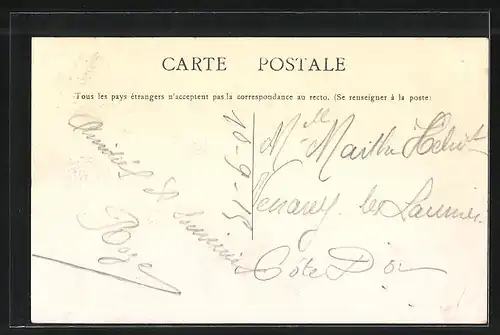 CARTE POSTALE
Tous les pays étrangers n'acceptent pas la correspondance au recto. (Se renseigner à la poste)
10-9-15
Amitiés et
Roger
Mlle
Venarey les Laumes
Côte D'Or